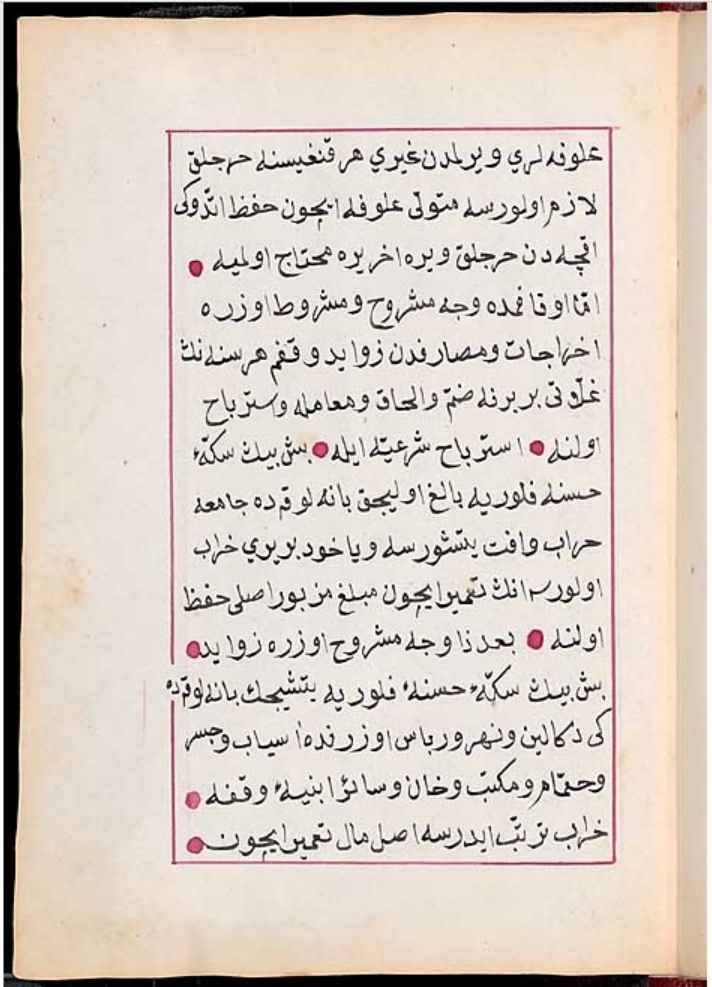 علوفه لري و يرلمدن غيري هر قنغيسنه حرجلق
لازم اولورسه متولّى علوفه ايچون حفظ اتّدوكى
اقچه دن حرجلق ويره اخر يره محتاج اولميه
امّا اوقافمده وجه مشروح ومشروط اوزره
اخراجات ومصارفدن زوايد وقفم هر سنه نك
غلّه تى بر برنه ضمّ والحاق ومعامله واسترباح
اولنه استرباح شرعيّه ايله بش بيك سكّهٔ
حسنه فلوريه بالغ اوليجق بانه لوقه ده جامعه
حراب وافت يتشورسه ويا خود بر يري خراب
اولورسه انك تعميرا ايچون مبلغ مزبور اصلى حفظ
اولنه بعد ذا وجه مشروح اوزره زوايد
بش بيك سكّهٔ حسنهٔ فلوريه يتشيجك بانه لوقه ده
كى دكالين ونهر ورباس اوزرنده اسياب وجسر
وحمّام ومكتب وخان وسائر ابنيهٔ وقفه
خراب ترتّب ايدرسه اصل مال تعميرا ايچون